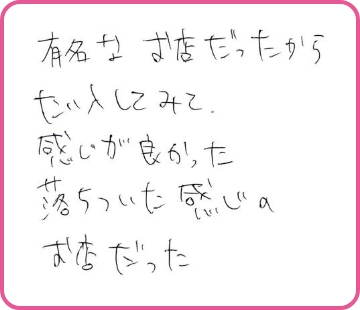 有名な お店だったから
たい入してみて.
感じが良かった
落ちついた感じの
お店だった